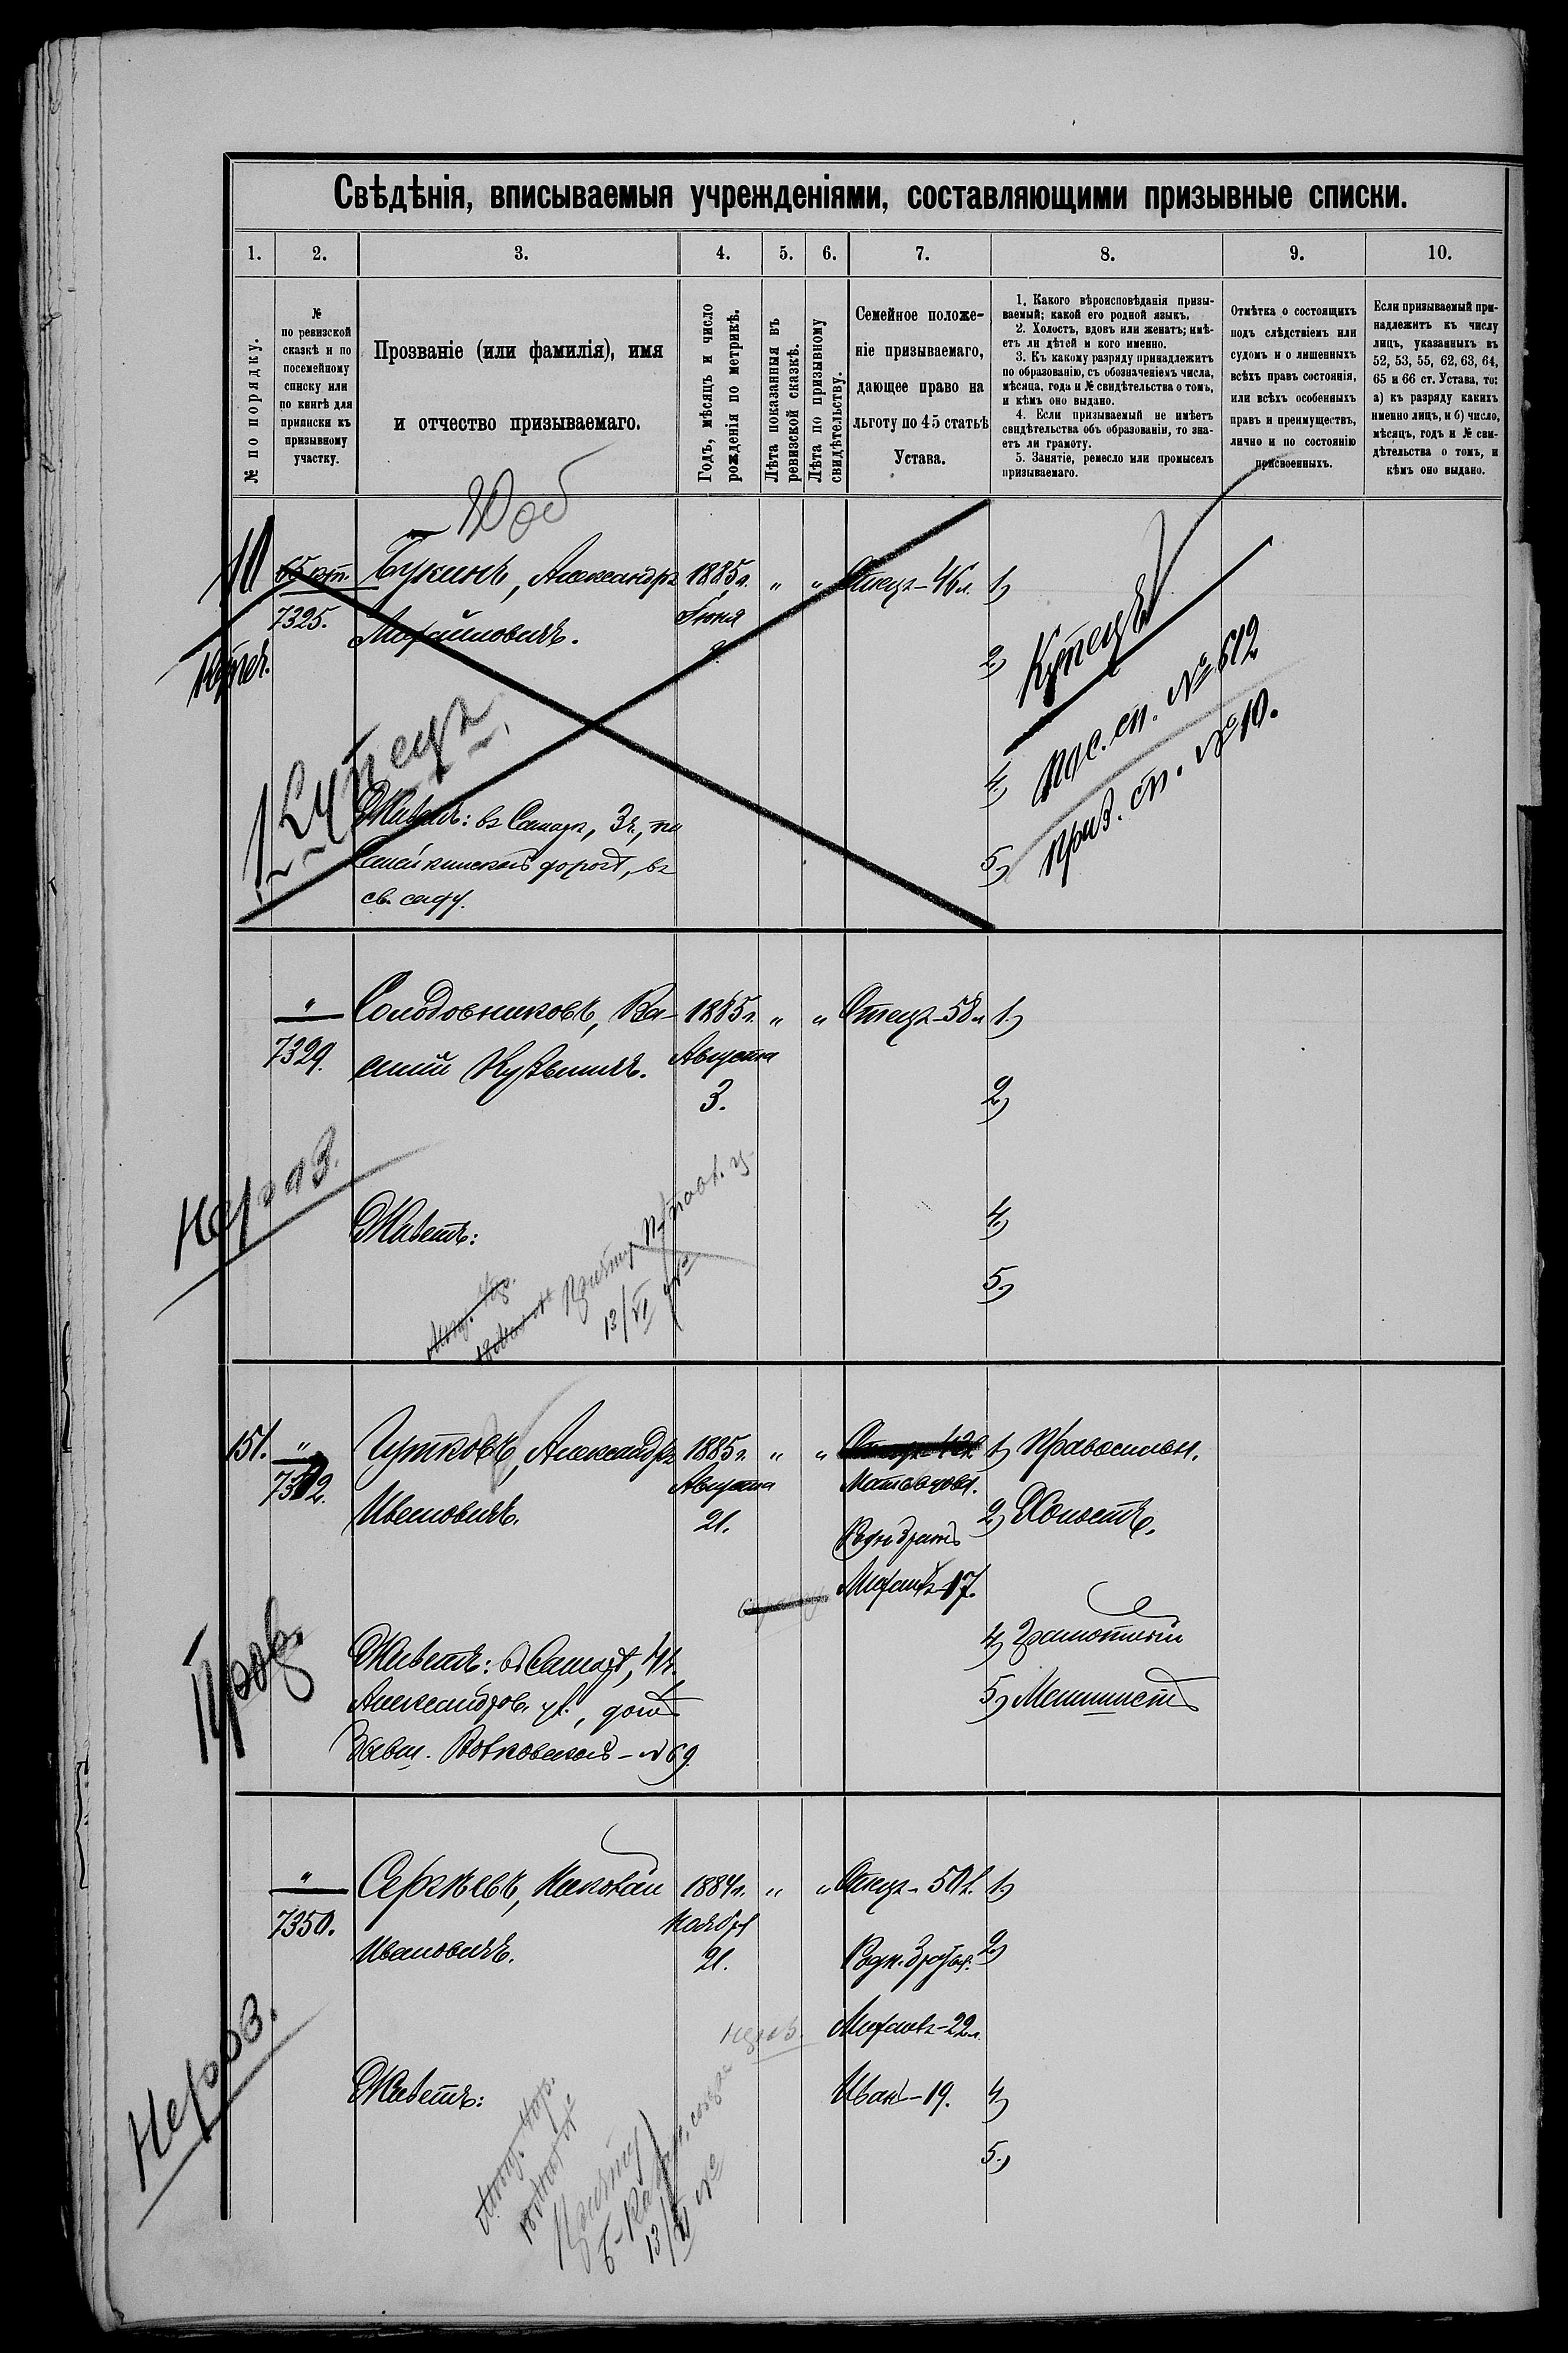 Свѣдѣнія, вписываемыя учрежденіями, составляющими призывные списки.
1. 2. 3. 4. 5. 6. 7. 8. 9. 10.
№ по порядку.
№
по ревизской
сказкѣ и по
посемейному
списку или
по книгѣ для
приписки къ
призывному
участку.
Прозваніе (или фамилія), имя
и отчество призываемаго.
Годъ, мѣсяцъ и число
рожденія по метрикѣ.
Лѣта показанныя въ
ревизской сказкѣ.
Лѣта по призывному
свидѣтельству.
Семейное положе-
ніе призываемаго,
дающее право на
льготу по 45 статьѣ
Устава.
1. Какого вѣроисповѣданія призы-
ваемый; какой его родной языкъ.
2. Холостъ, вдовъ или женатъ; имѣ-
етъ ли дѣтей и кого именно.
3. Къ какому разряду принадлежитъ
по образованію, съ обозначеніемъ числа,
мѣсяца, года и № свидѣтельства о томъ,
и кѣмъ оно выдано.
4. Если призываемый не имѣетъ
свидѣтельства объ образованіи, то зна-
етъ ли грамоту.
5. Занятіе, ремесло или промыселъ
призываемаго.
Отмѣтка о состоящихъ
подъ слѣдствіемъ или
судомъ и о лишенныхъ
всѣхъ правъ состоянія,
или всѣхъ особенныхъ
правъ и преимуществъ,
лично и по состоянію
присвоенныхъ.
Если призываемый при-
надлежитъ къ числу
лицъ, указанныхъ въ
52, 53, 55, 62, 63, 64,
65 и 66 ст. Устава, то:
а) къ разряду какихъ
именно лицъ, и б) число,
мѣсяцъ, годъ и № сви-
дѣтельства о томъ, и
кѣмъ оно выдано.
10 Букинъ, Александръ 1885 г. " " Отецъ - 46 л. 1)
7325. Михайловичъ. Іюня
2) Купецъ
купеч.
Купецъ
пос. сп. № 612
4)
приз. сп. № 10.
5)
Живетъ: въ Самарѣ, 3 ч., по
Семейкинской дорогѣ, въ
св. саду.
" Солодовниковъ, Ва- 1885 г. " " Отецъ - 58 л 1)
7329. силій Кузьмичъ. Августа
3. 2)
Нерозыс.
Живетъ: 4)
13/VI
5)
151. " Чутковъ, Александръ 1885 г. " " 1) Православн.
Ивановичъ. Августа Мать вдова.
21. 2) Холостъ.
Родн. братъ
Михаилъ - 17.
Живетъ: въ Самарѣ, 4 ч. 4) Грамотный
Александров. ул., домъ 5) Машинистъ
№ 69.
" Сергѣевъ, Николай 1884 г. " " Отецъ - 50 л. 1)
7350. Ноября
Ивановичъ. 21. Родн. братья: 2)
Михаилъ - 22 л.
Живетъ: Иванъ - 19. 4)
5)
13/VI